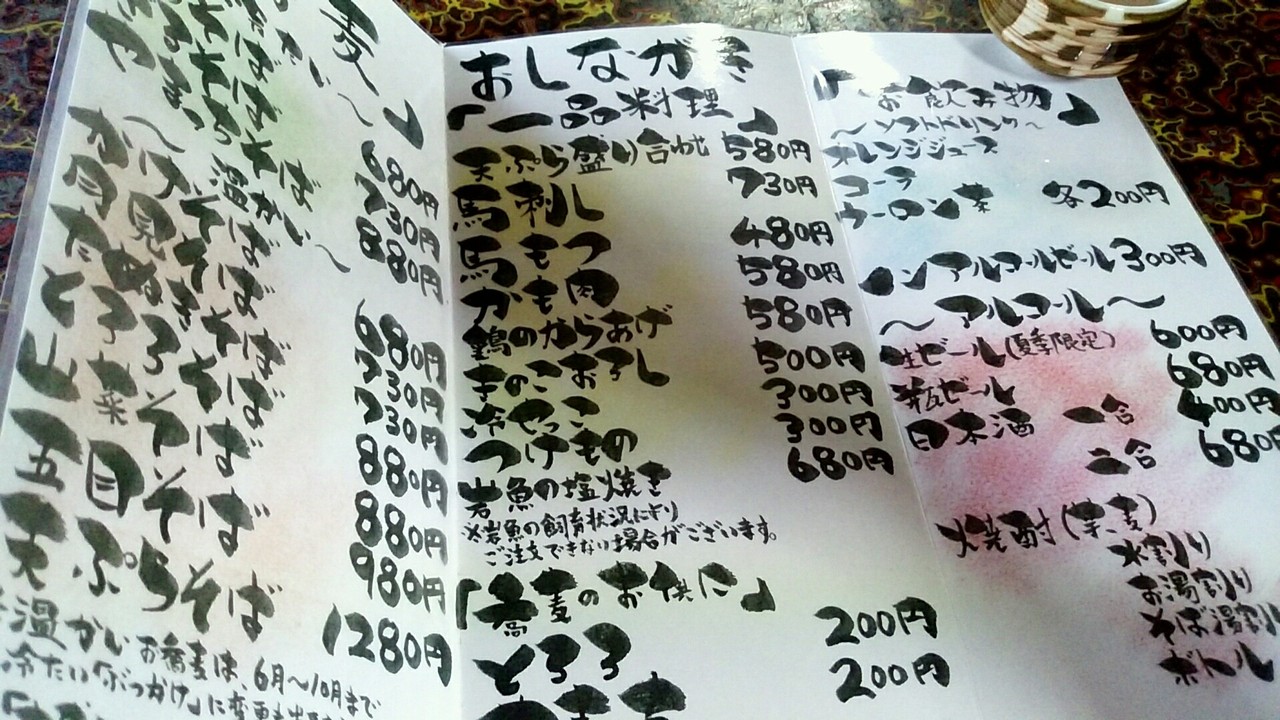 麦」
〜温かい〜
かけそば 680円
月見そば 730円
たぬきそば 730円
とろろそば 880円
山菜そば 880円
五目そば 980円
天ぷらそば 1280円
温かいお蕎麦は、6月〜10月まで
冷たい「ぶっかけ」に変更
680円
730円
880円
おしながき
「一品料理」
天ぷら盛り合わせ 580円
馬刺し 730円
馬もつ 480円
かも肉 580円
鶏のからあげ 580円
きのこおろし 500円
冷やっこ 300円
つけもの 300円
岩魚の塩焼き 680円
※岩魚の飼育状況により
ご注文できない場合がございます。
「蕎麦のお供に」
とろろ 200円
200円
「お飲み物」
〜ソフトドリンク〜
オレンジジュース
コーラ
ウーロン茶 各200円
ノンアルコールビール300円
〜アルコール〜
生ビール(夏季限定) 600円
瓶ビール 680円
日本酒 一合 400円
二合 680円
焼酎(芋、麦)
水割り
お湯割り
そば湯割
ボトル